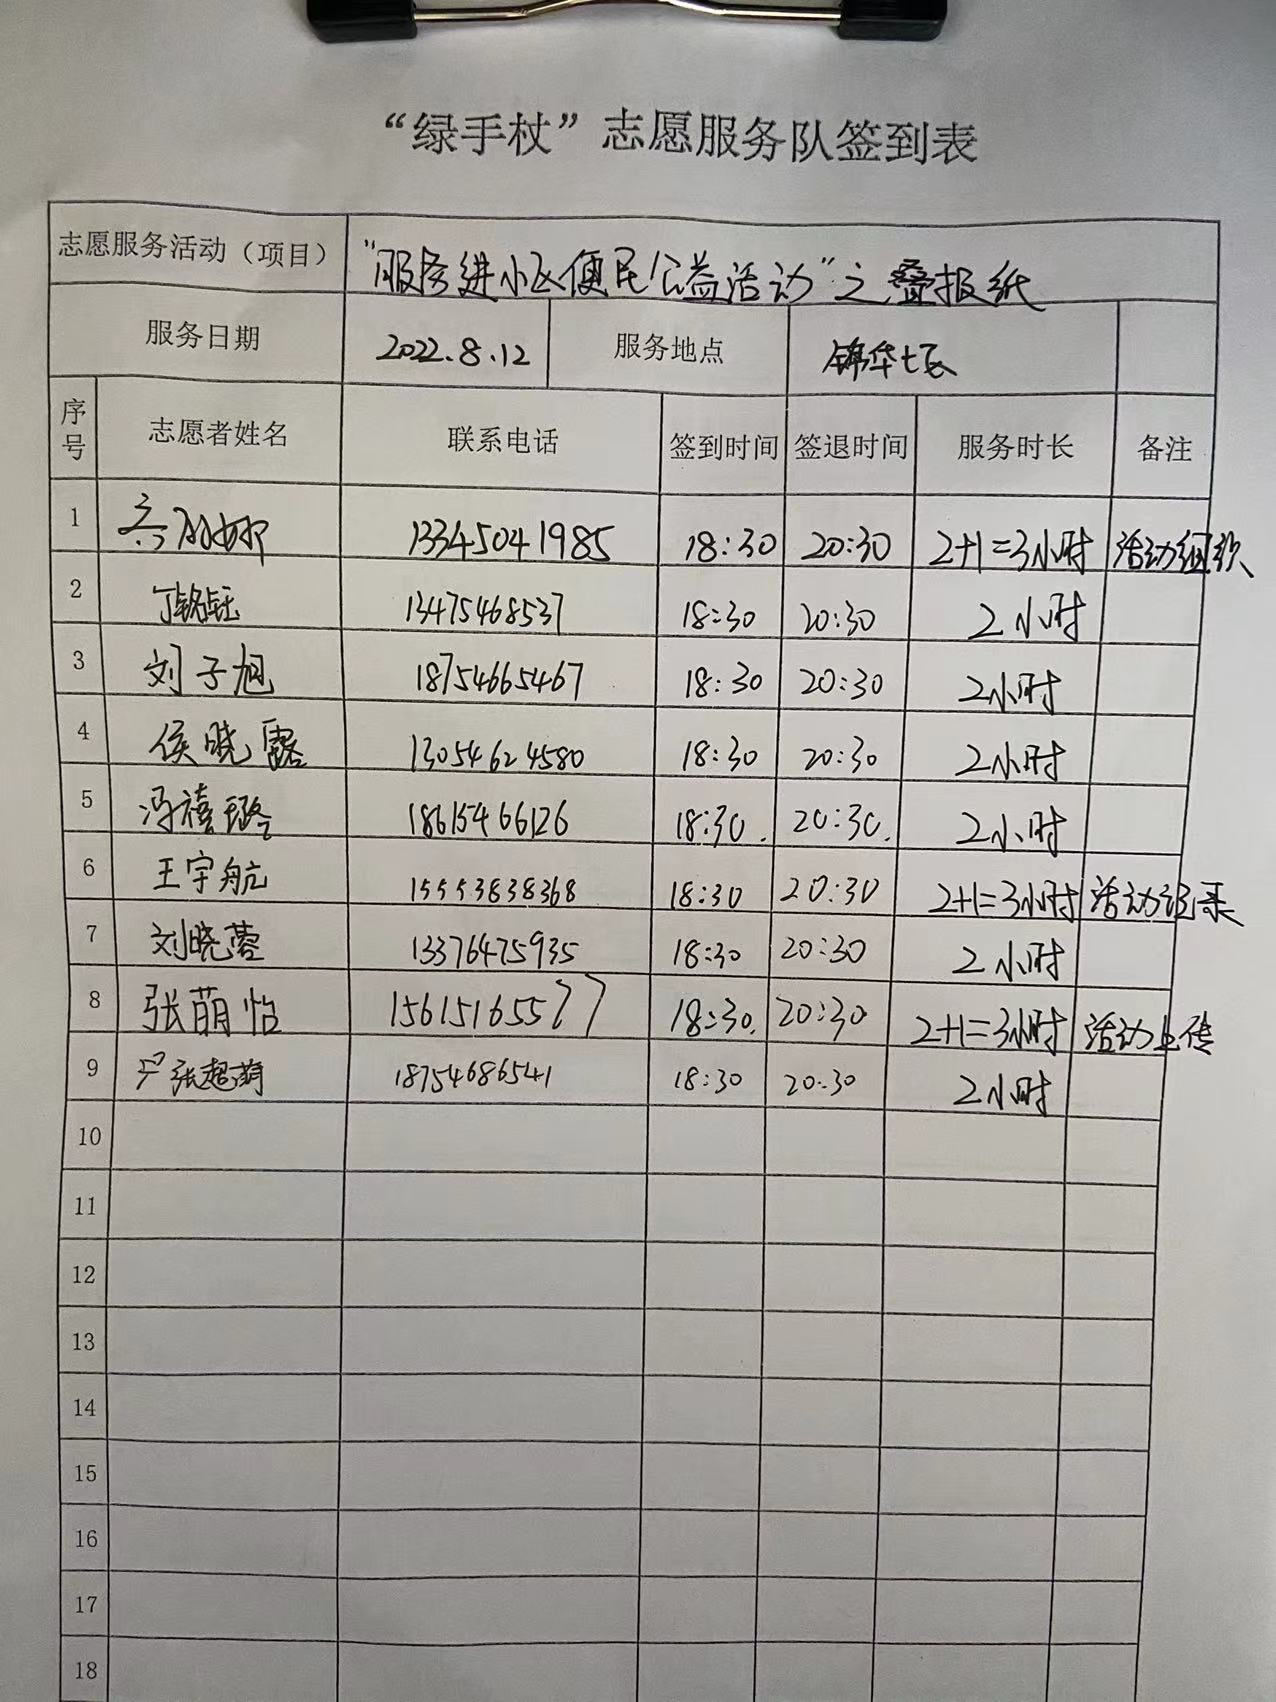 “绿手杖”志愿服务队签到表
志愿服务活动（项目） “服务进小区便民公益活动”之叠报纸
服务日期 2022.8.12 服务地点 锦华七区
序号 志愿者姓名 联系电话 签到时间 签退时间 服务时长 备注
1 13345041985 18:30 20:30 2+1=3小时 活动组织
2 丁铭钰 13475468537 18:30 20:30 2小时
3 刘子旭 18754665467 18:30 20:30 2小时
4 侯晓露 13054624580 18:30 20:30 2小时
5 冯禧璐 18615466126 18:30. 20:30. 2小时
6 王宇航 15553838368 18:30 20:30 2+1=3小时 活动记录
7 刘晓蓉 13376475935 18:30 20:30 2小时
8 张萌怡 15615165577 18:30. 20:30 2+1=3小时 活动上传
9 张超萌 18754686541 18:30 20:30 2小时
10
11
12
13
14
15
16
17
18